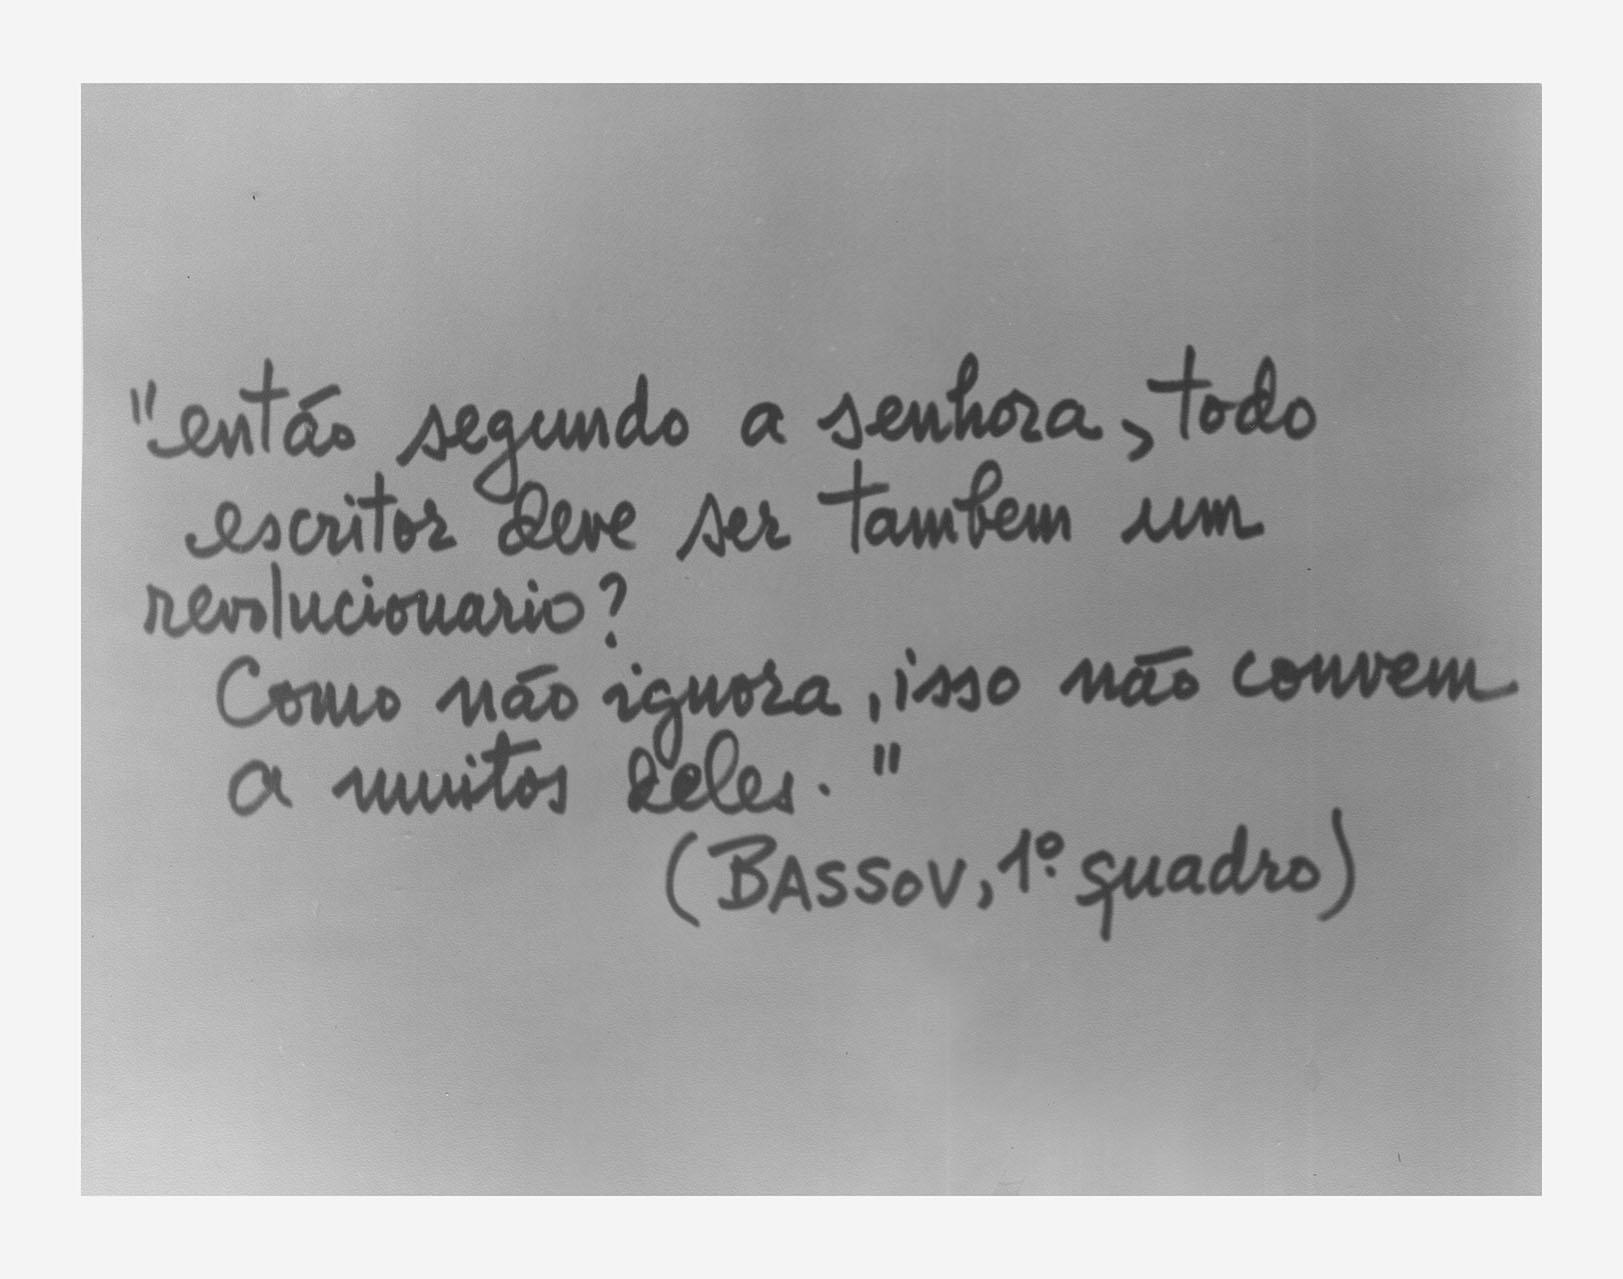 "então segundo a senhora, todo
escritor deve ser tambem um
revolucionario?
Como não ignora, isso não convem
a muitos deles."
(BASSOV, 1º quadro)